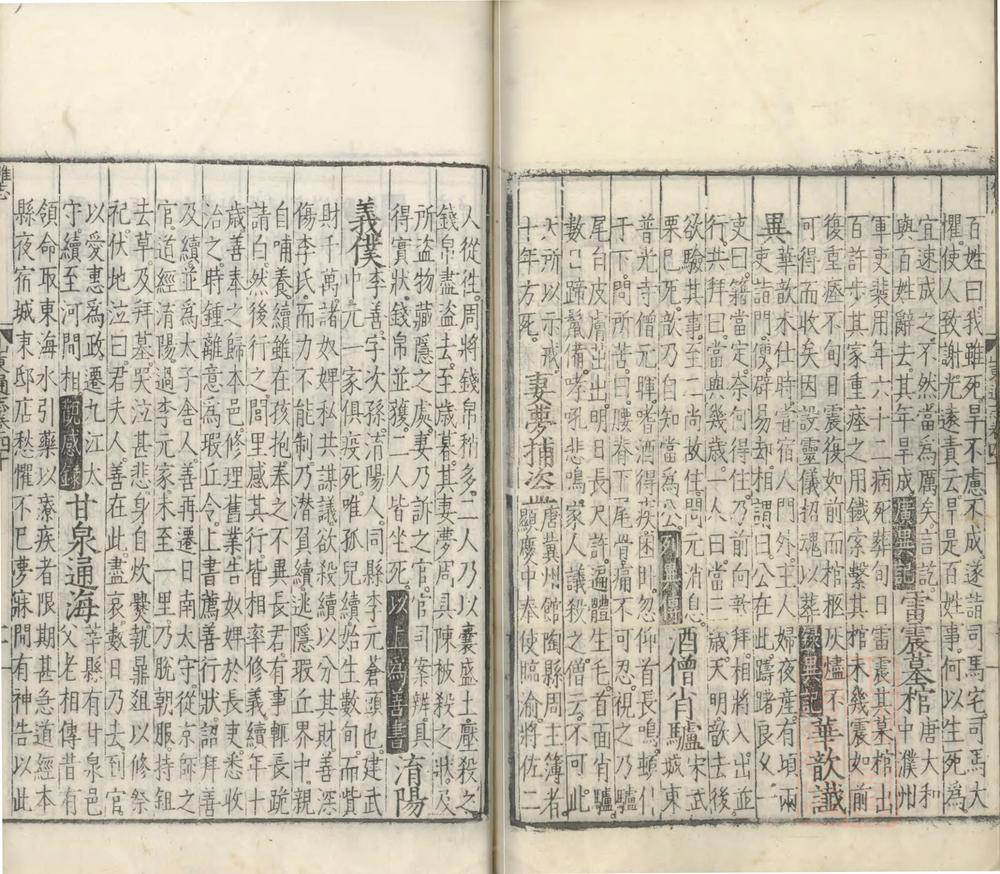 百姓曰我雖死旱不慮不成遂詣司馬宅司馬大
懼使人致謝光遠責云旱是百姓事何以生死為
宜速成之不然當為厲矣言訖
與百姓辭去其年旱成廣異記雷震墓棺唐大和中濮州
軍吏裴用年六十二病死葬旬日雷震其墓棺出
百許步其家重瘞之用鐵索繫其棺未幾震如前
復重瘞不旬日震復如前而棺柩灰燼不
可得而收矣因設靈儀招魂以葬錄異記華歆識
異華歆未仕時嘗宿人門外主人婦夜產有頃兩
吏詣門便辟易却相謂曰公在此躊躇良乆一
吏曰籍當定奈何得住乃前向歆拜相將入出並
行共拜曰當與幾歲一人曰當三歲天明歆去後
欲驗其事至三尚故住問元消息
栗巳死歆乃自知當為公列異傳酒僧肖驢宋武城東
普光寺僧元暉嗜酒得疾困卧忽仰首長鳴頓仆
于下問所苦曰腰脊下尾骨痛不可忍視之乃驢
尾自皮膚出出明日長尺許遍體生毛首面肖驢
數日蹄鬣備哮吼悲鳴家人議殺之僧云不可此
天所以示戒
十年方死妻夢捕盜唐冀州館陶縣周主簿者顯慶中奉使臨渝將佐二
人從往周將錢帛稍多二人乃以囊盛土壓殺之
錢帛盡盜去至歲暮其妻夢周具陳被殺之狀及
所盜物藏隱之處妻乃訴之官官司案辨具
得實狀錢帛並獲二人皆坐死以上為善書淯陽
義僕李善字次孫淯陽人同縣李元蒼頭也建武中元一家俱疫死唯孤兒續始生數旬而貲
財千萬諸奴婢私共謀議欲殺續以分其財善深
傷李氏而力不能制乃潛負續逃隱瑕丘界中親
自哺養續雖在孩抱奉之不異長君有事輒長跪
請白然後行之閭里感其行皆相率修義續年十
歲善奉之歸本邑修理舊業告奴婢於長吏悉收
治之時鍾離意為瑕丘令上書薦善行狀詔拜善
及續並為太子舍人善再遷日南太守從京師之
官道經淯陽過李元家未至一里乃脫朝服持鉏
去草及拜墓哭泣甚悲身自炊爨執鼎俎以修祭
祀伏地泣曰君夫人善在此盡哀數日乃去到官
以愛惠為政遷九江太
守續至河間相觀感錄甘泉通海莘縣有甘泉邑父老相傳昔有
領命取東海水引藥以療疾者限期甚急道經本
縣夜宿城東邸店愁懼不巳夢寐間有神告以此